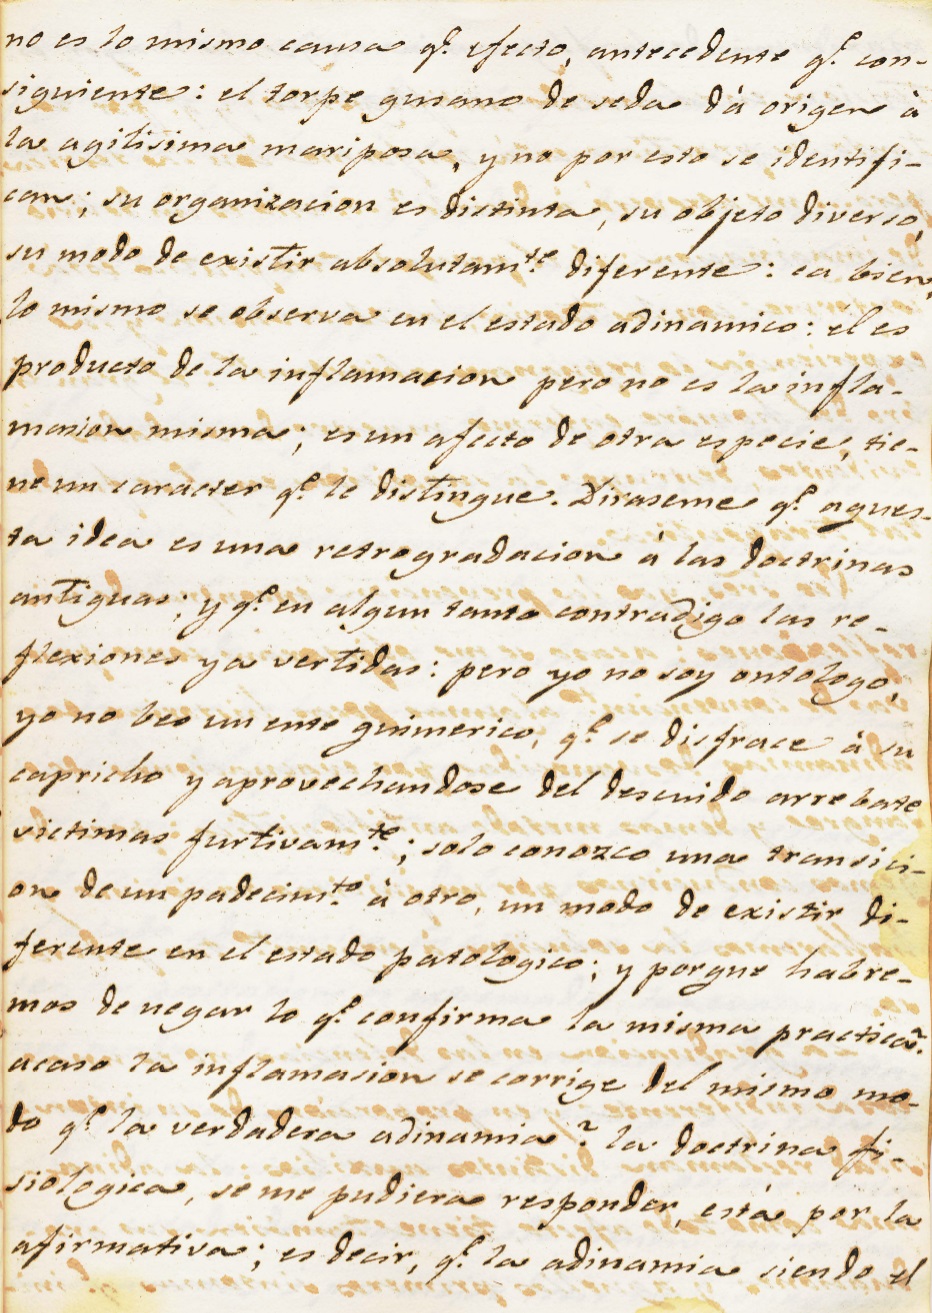 no es lo mismo causa q.e efecto, antecedente q.e con-
siguiente: el torpe gusano de seda dá origen á
la agilisima mariposa, y no por esto se identifi-
can; su organizacion es distinta, su objeto diverso,
su modo de existir absolutam.te diferente: ea bien,
lo mismo se observa en el estado adinamico: él es
producto de la inflamacion pero no es la infla-
macion misma; es un afecto de otra especie, tie-
ne un caracter q.e le distingue. Diraseme q.e aques-
ta idea es una retrogradacion á las doctrinas
antiguas; y q.e en algun tanto contradigo las re-
flexiones ya vertidas: pero yo no soy ontologo,
yo no beo un ente quimerico, q.e se disfrace á su
capricho y aprovechandose del descuido arrebate
victimas furtivam.te; solo conozco una transici-
on de un padecim.to á otro, un modo de existir di-
ferente en el estado patologico; y porque habre-
mos de negar lo q.e confirma la misma practica?
acaso la inflamasion se corrige del mismo mo-
do q.e la verdadera adinamia? la doctrina fi-
siologica, se me pudiera responder, está por la
afirmativa; es decir, q.e la adinamia siendo el